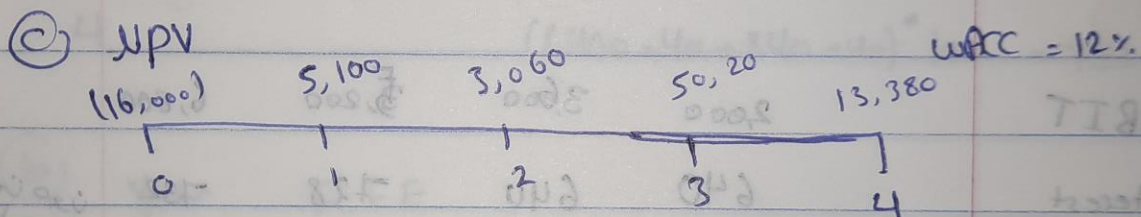 C) NPV WACC = 12%
(16,000) 5,100 3,060 50,20 13,380
0 1 2 3 4